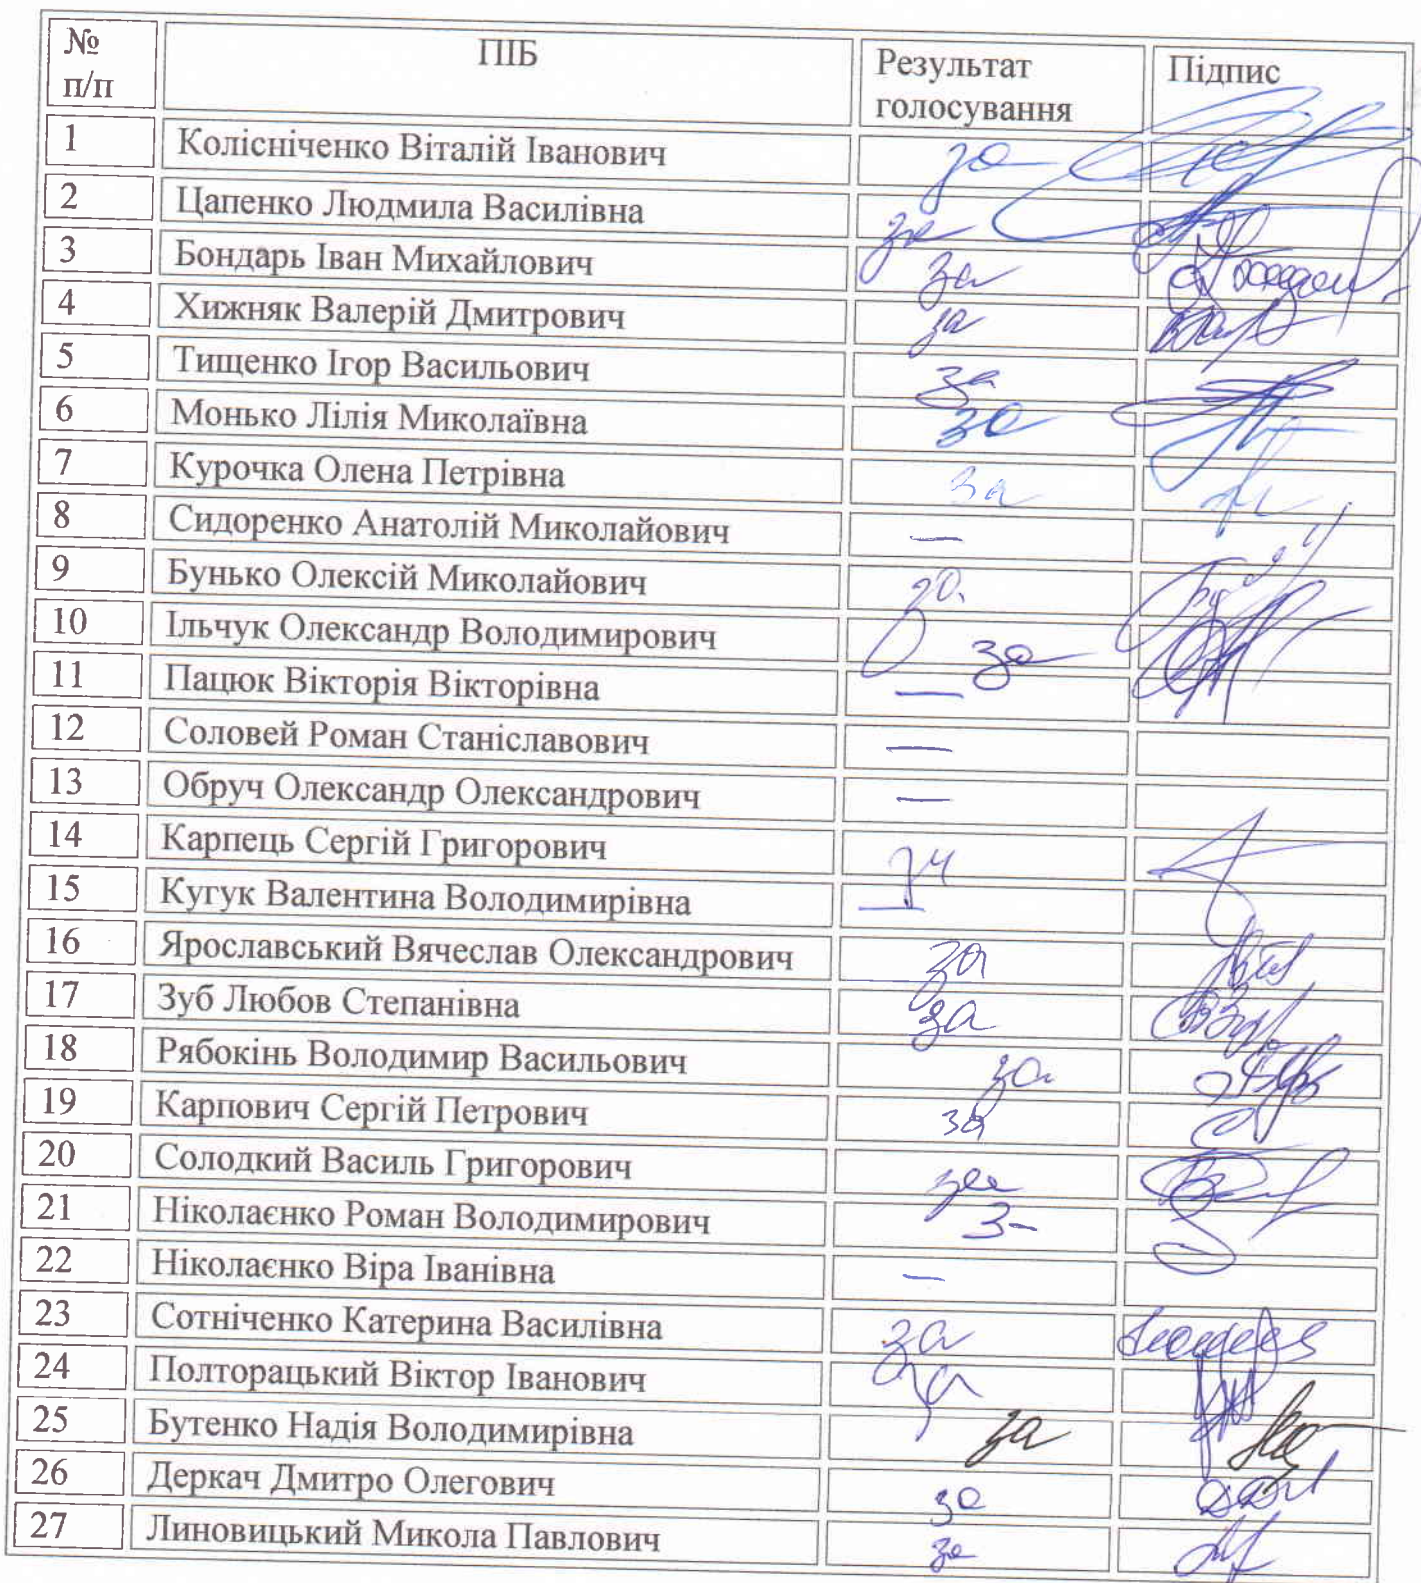 № п/п ПІБ Результат голосування Підпис
1 Колісніченко Віталій Іванович за
2 Цапенко Людмила Василівна за
3 Бондарь Іван Михайлович за
4 Хижняк Валерій Дмитрович за
5 Тищенко Ігор Васильович за
6 Монько Лілія Миколаївна за
7 Курочка Олена Петрівна за
8 Сидоренко Анатолій Миколайович —
9 Бунько Олексій Миколайович за
10 Ільчук Олександр Володимирович за
11 Пацюк Вікторія Вікторівна —
12 Соловей Роман Станіславович —
13 Обруч Олександр Олександрович —
14 Карпець Сергій Григорович за
15 Кугук Валентина Володимирівна —
16 Ярославський Вячеслав Олександрович за
17 Зуб Любов Степанівна за
18 Рябокінь Володимир Васильович за
19 Карпович Сергій Петрович за
20 Солодкий Василь Григорович за
21 Ніколаєнко Роман Володимирович
22 Ніколаєнко Віра Іванівна —
23 Сотніченко Катерина Василівна за
24 Полторацький Віктор Іванович за
25 Бутенко Надія Володимирівна за
26 Деркач Дмитро Олегович за
27 Линовицький Микола Павлович за